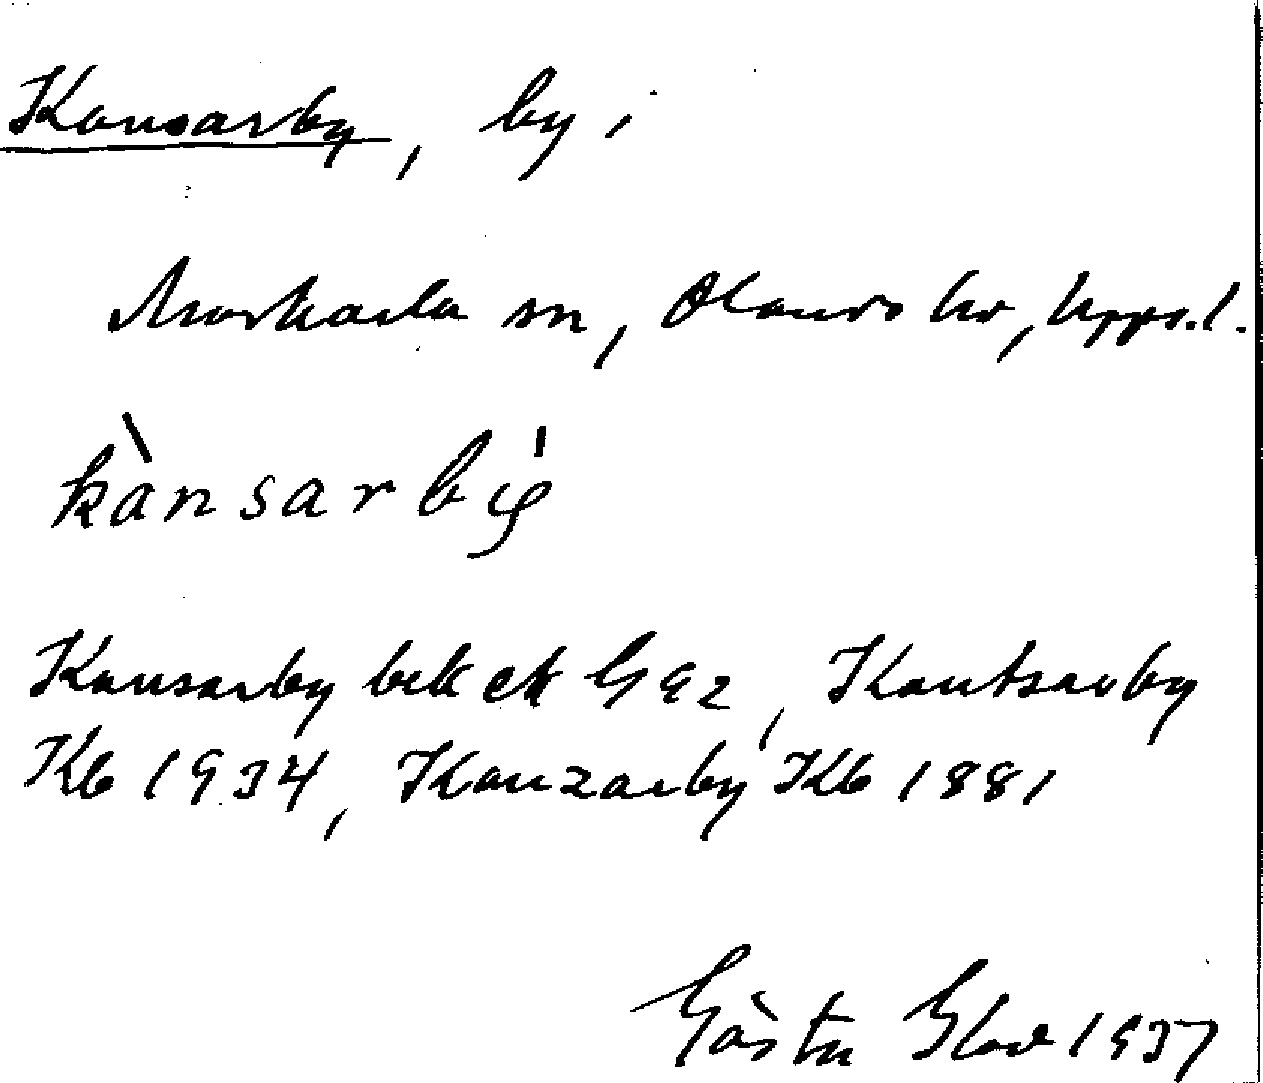 Kansarby, by i
Morkarla sn, Olands hd, Uppl.
kànsarby̍
Kansarby bek ek G 92, Kantsarby
Kb 1934, Kanzarby Kb 1881
Gösta 1937